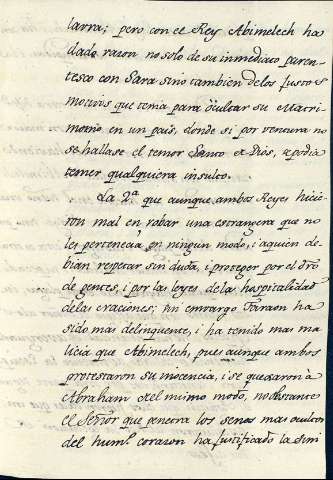 larra; pero con el Rey Abimelech ha
dado razon no solo de su inmediato paren-
tesco con Sara sino tambien de los justos
motivos que tenia para ocultar su Matri-
monio en un pais, donde si por ventura no
se hallase el temor Santo de Dios, se podia
temer qualquiera insulto.
La 2ª que aunque ambos Reyes hicie-
ron mal en robar una estrangera que no
les pertenecia en ningun modo, i aquien de-
bian respetar sin duda, i proteger por el dro
de gentes, i por las leyes de la hospitalidad
de las naciones; sin embargo Faraon ha
sido mas delinquente, i ha tenido mas ma-
licia que Abimelech, pues aunque ambos
protestaron su inocencia, i se quexaron à
Abraham del mismo modo, no obstante
el Señor que penetra los senos mas ocultos
del humº corazon ha justificado la sim